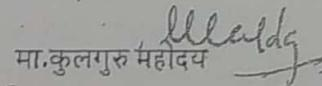 मा.कुलगुरु महोदय